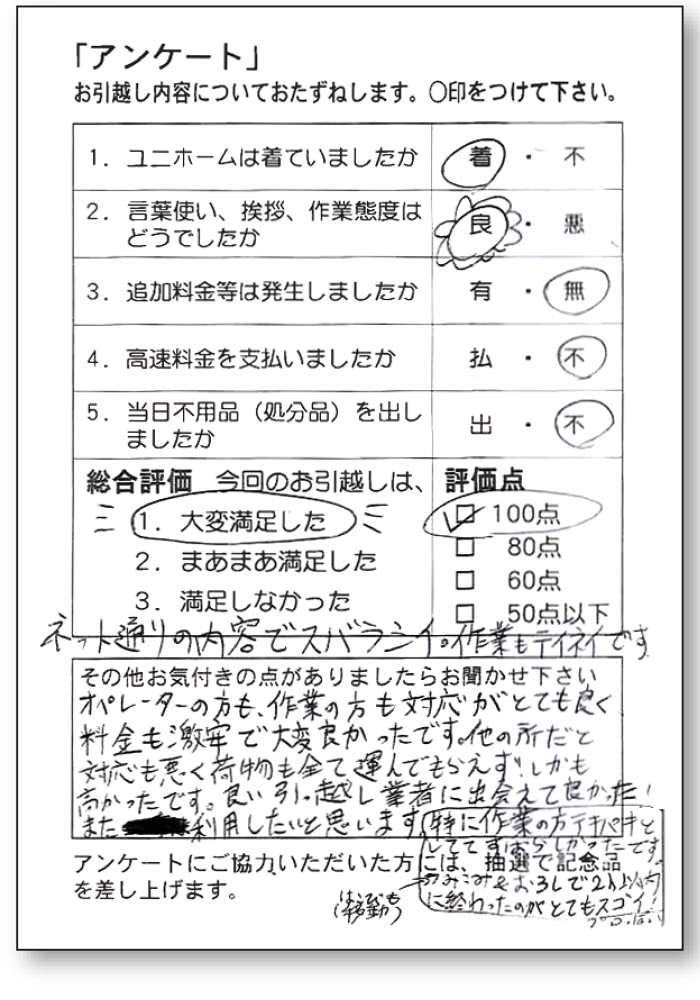 「アンケート」
お引越し内容についておたずねします。〇印をつけて下さい。
1. ユニホームは着ていましたか 着 ・ 不
2. 言葉使い、挨拶、作業態度は
どうでしたか 良 ・ 悪
3. 追加料金等は発生しましたか 有 ・ 無
4. 高速料金を支払いましたか 払 ・ 不
5. 当日不用品（処分品）を出し
ましたか 出 ・ 不
総合評価 今回のお引越しは、
1. 大変満足した
2. まあまあ満足した
3. 満足しなかった
評価点
100点
80点
60点
50点以下
ネット通りの内容でスバラシイ。作業もテイネイです
その他お気付きの点がありましたらお聞かせ下さい
オペレーターの方も、作業の方も対応がとても良く
料金も激安で大変良かったです。他の所だと
対応も悪く荷物も全て運んでもらえず、しかも
高かったです。良い引っ越し業者に出会えて良かった!
また利用したいと思います。
特に作業の方テキパキと
しててすばらしかったです。
つみこみ&おろしで2h以内
に終わったのがとてもスゴイ!
アンケートにご協力いただいた方には、抽選で記念品
を差し上げます。